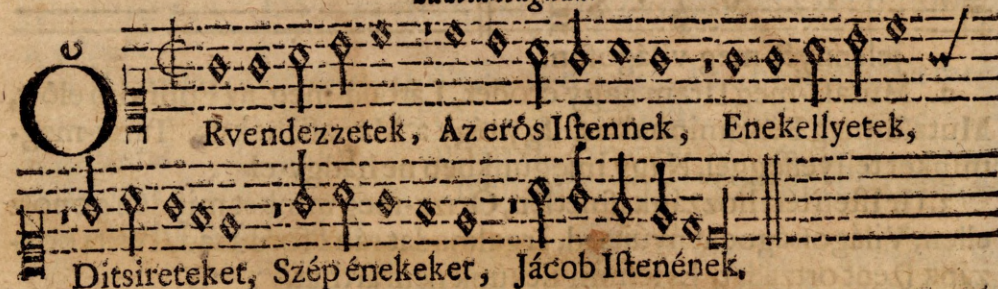 OͤRvendezzetek, Az erős Iſtennek, Enekellyetek,
Ditsireteket, Szép énekeket, Jácob Iſtenének.